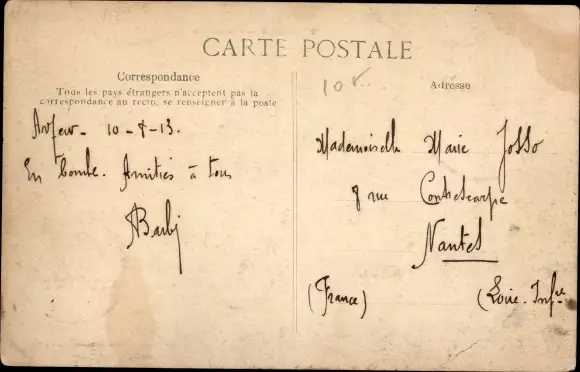 CARTE POSTALE
Correspondance
Tous les pays étrangers n'acceptent pas la
correspondance au recto, se renseigner à la poste
10 - 8 - 13.
En bombe. Amitiés à tous
Adresse
Mademoiselle Marie Josso
8 rue Contrescarpe
Nantes
(France)
(Loire. Infre